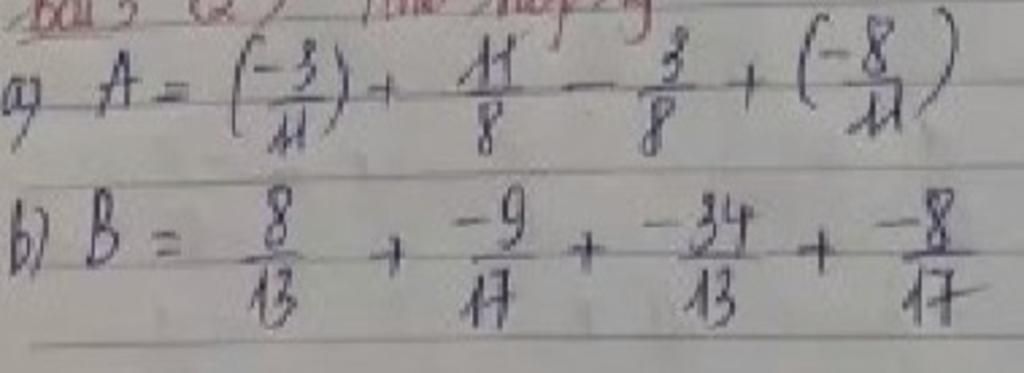 Bài 3 (2)
a) A = (-3/11) + 11/8 - 3/8 + (-8/11)
b) B = 8/13 + -9/17 + -34/13 + -8/17